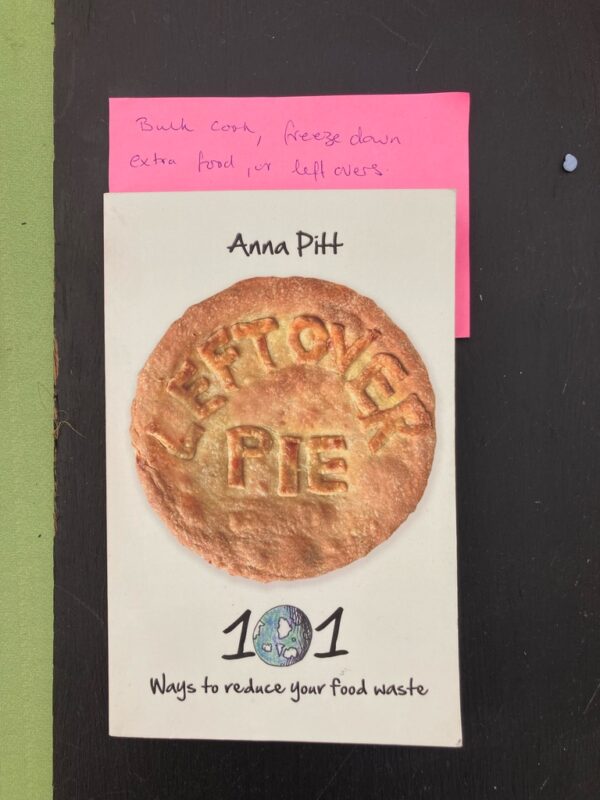 Bulk cook, freeze down
extra food, or left overs.
Anna Pitt
LEFTOVER
PIE
101
Ways to reduce your food waste